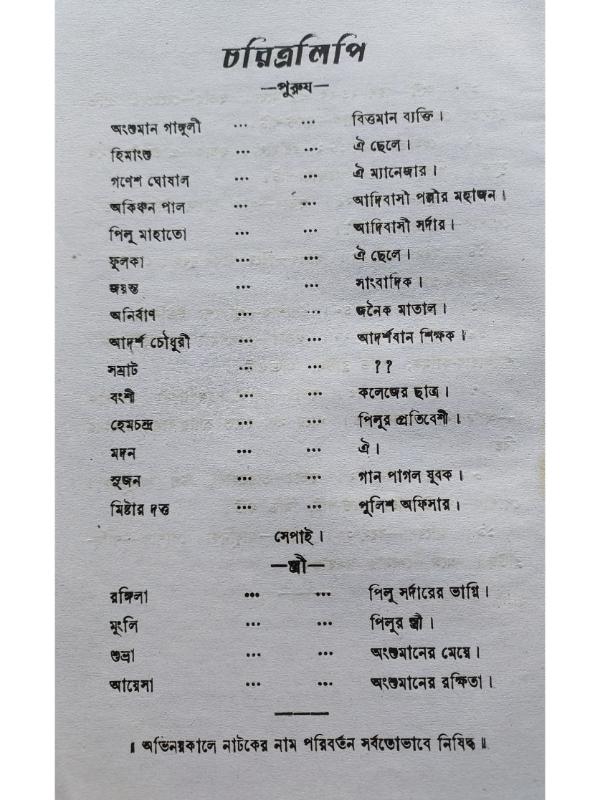 চরিত্রলিপি
—পুরুষ—
অংশুমান গাঙ্গুলী ... ... বিত্তমান ব্যক্তি।
হিমাংশু ... ... ঐ ছেলে।
গণেশ ঘোষাল ... ... ঐ ম্যানেজার।
অকিঞ্চন পাল ... ... আদিবাসী পল্লীর মহাজন।
পিলু মাহাতো ... ... আদিবাসী সর্দার।
ফুলকা ... ... ঐ ছেলে।
জয়ন্ত ... ... সাংবাদিক।
অনির্বাণ ... ... জনৈক মাতাল।
আদর্শ চৌধুরী ... ... আদর্শবান শিক্ষক।
সম্রাট ... ... ??
বংশী ... ... কলেজের ছাত্র।
হেমচন্দ্র ... ... পিলুর প্রতিবেশী।
মদন ... ... ঐ।
সুজন ... ... গান পাগল যুবক।
মিষ্টার দত্ত ... ... পুলিশ অফিসার।
সেপাই।
—স্ত্রী—
রঙ্গিলা ... ... পিলু সর্দারের ভাগ্নি।
মুংলি ... ... পিলুর স্ত্রী।
শুভ্রা ... ... অংশুমানের মেয়ে।
আয়েসা ... ... অংশুমানের রক্ষিতা।
॥ অভিনয়কালে নাটকের নাম পরিবর্তন সর্বতোভাবে নিষিদ্ধ ॥